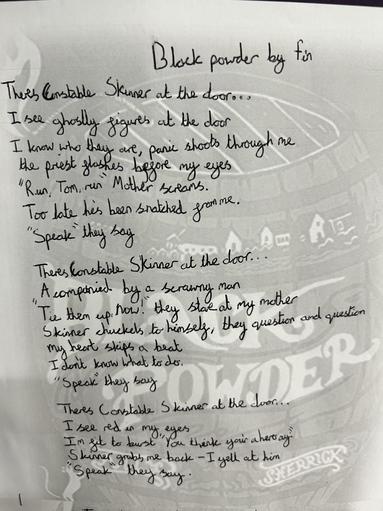 Black powder by fin
Theres Constable Skinner at the door...
I see ghostly figures at the door
I know who they are, panic shoots through me
the priest flashes before my eyes
"Run, Tom, run" Mother screams.
Too late he's been snatched from me.
"Speak" they say
Theres Constable Skinner at the door...
Acompanied by a scrawny man
"Tie them up, Now!" they stare at my mother
Skinner chuckels to himself, they question and question
my heart skips a beat
I don't know what to do.
"Speak they say
Theres Constable Skinner at the door...
I see red in my eyes
I'm fit to burst "You think your a hero ay"
Skinner grabs me back - I yell at him
"Speak" they say.
BLACK
POWDER
SHERRICK
1